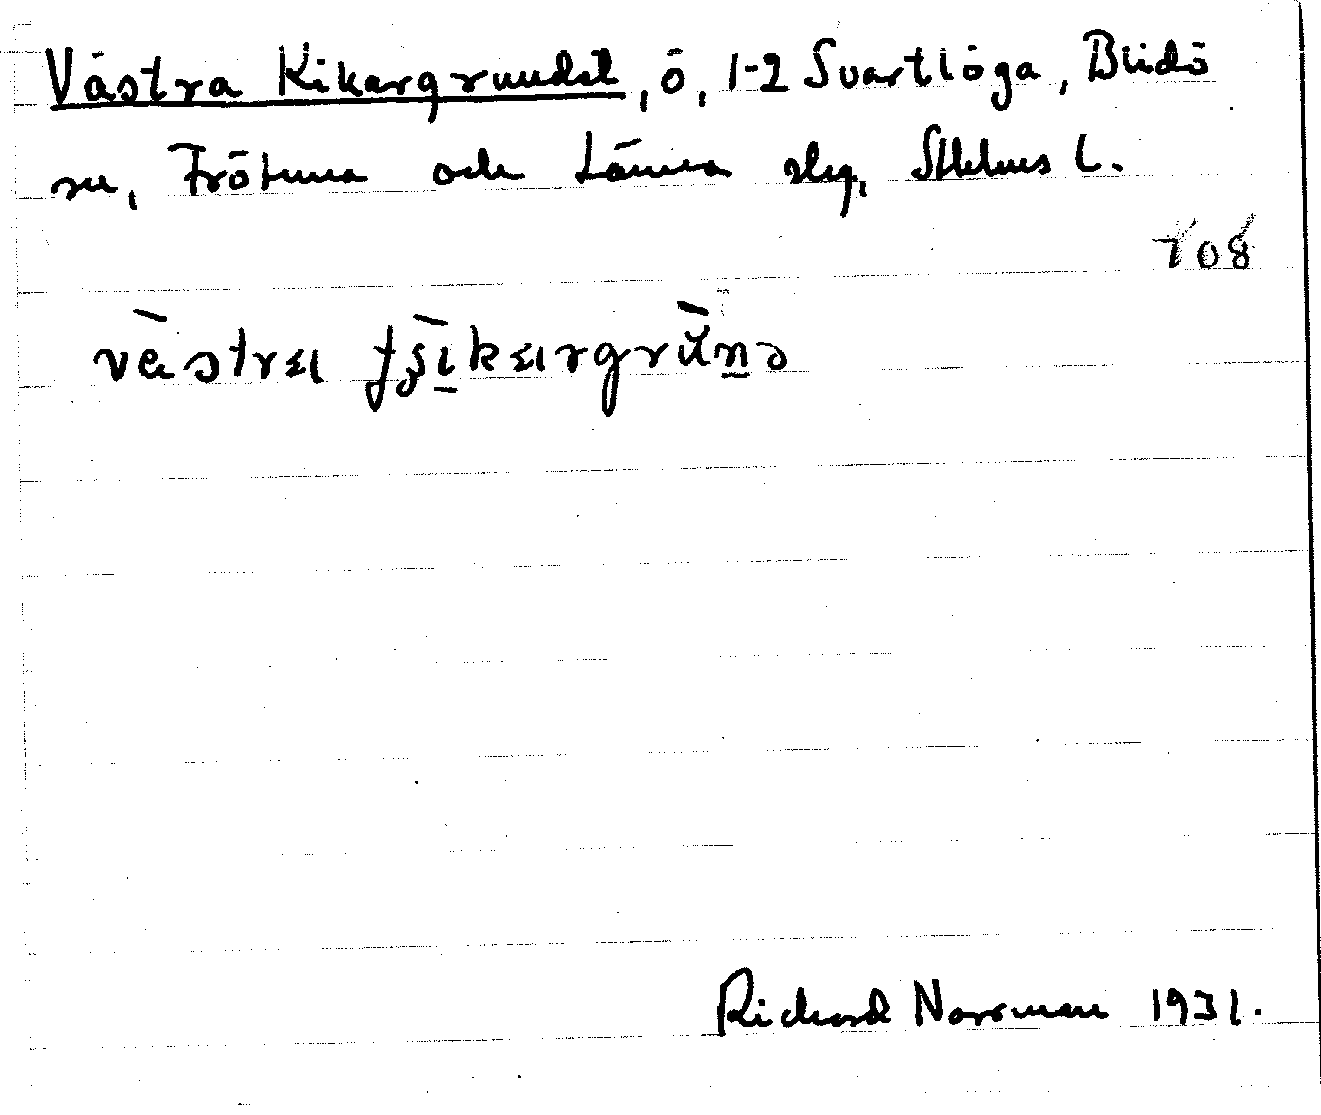 Västra Kikargrundet, ö, 1-2 Svartlöga, Blidö
sn, Frötuna och Länna slg, Sthlms l.
708
Richard Norrman 1931.